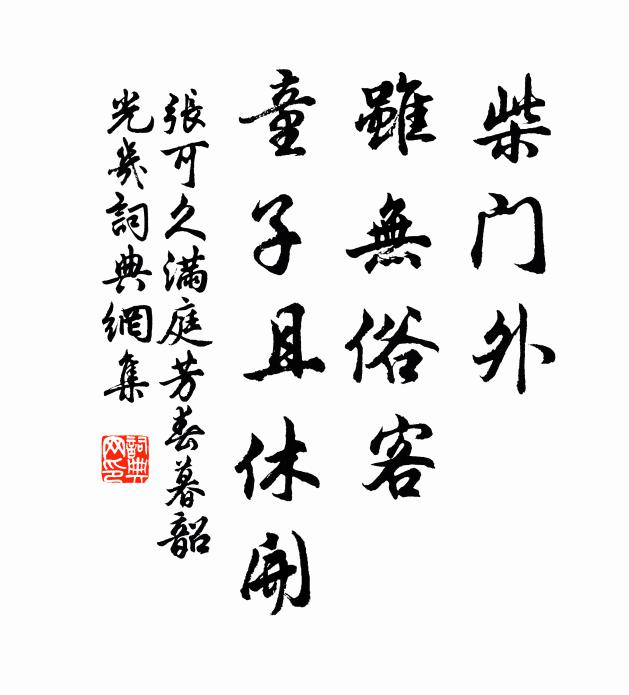 柴门外
雖無俗客
童子且休開
張可久滿庭芳春暮韶
光幾詞典網集
詞典
网印